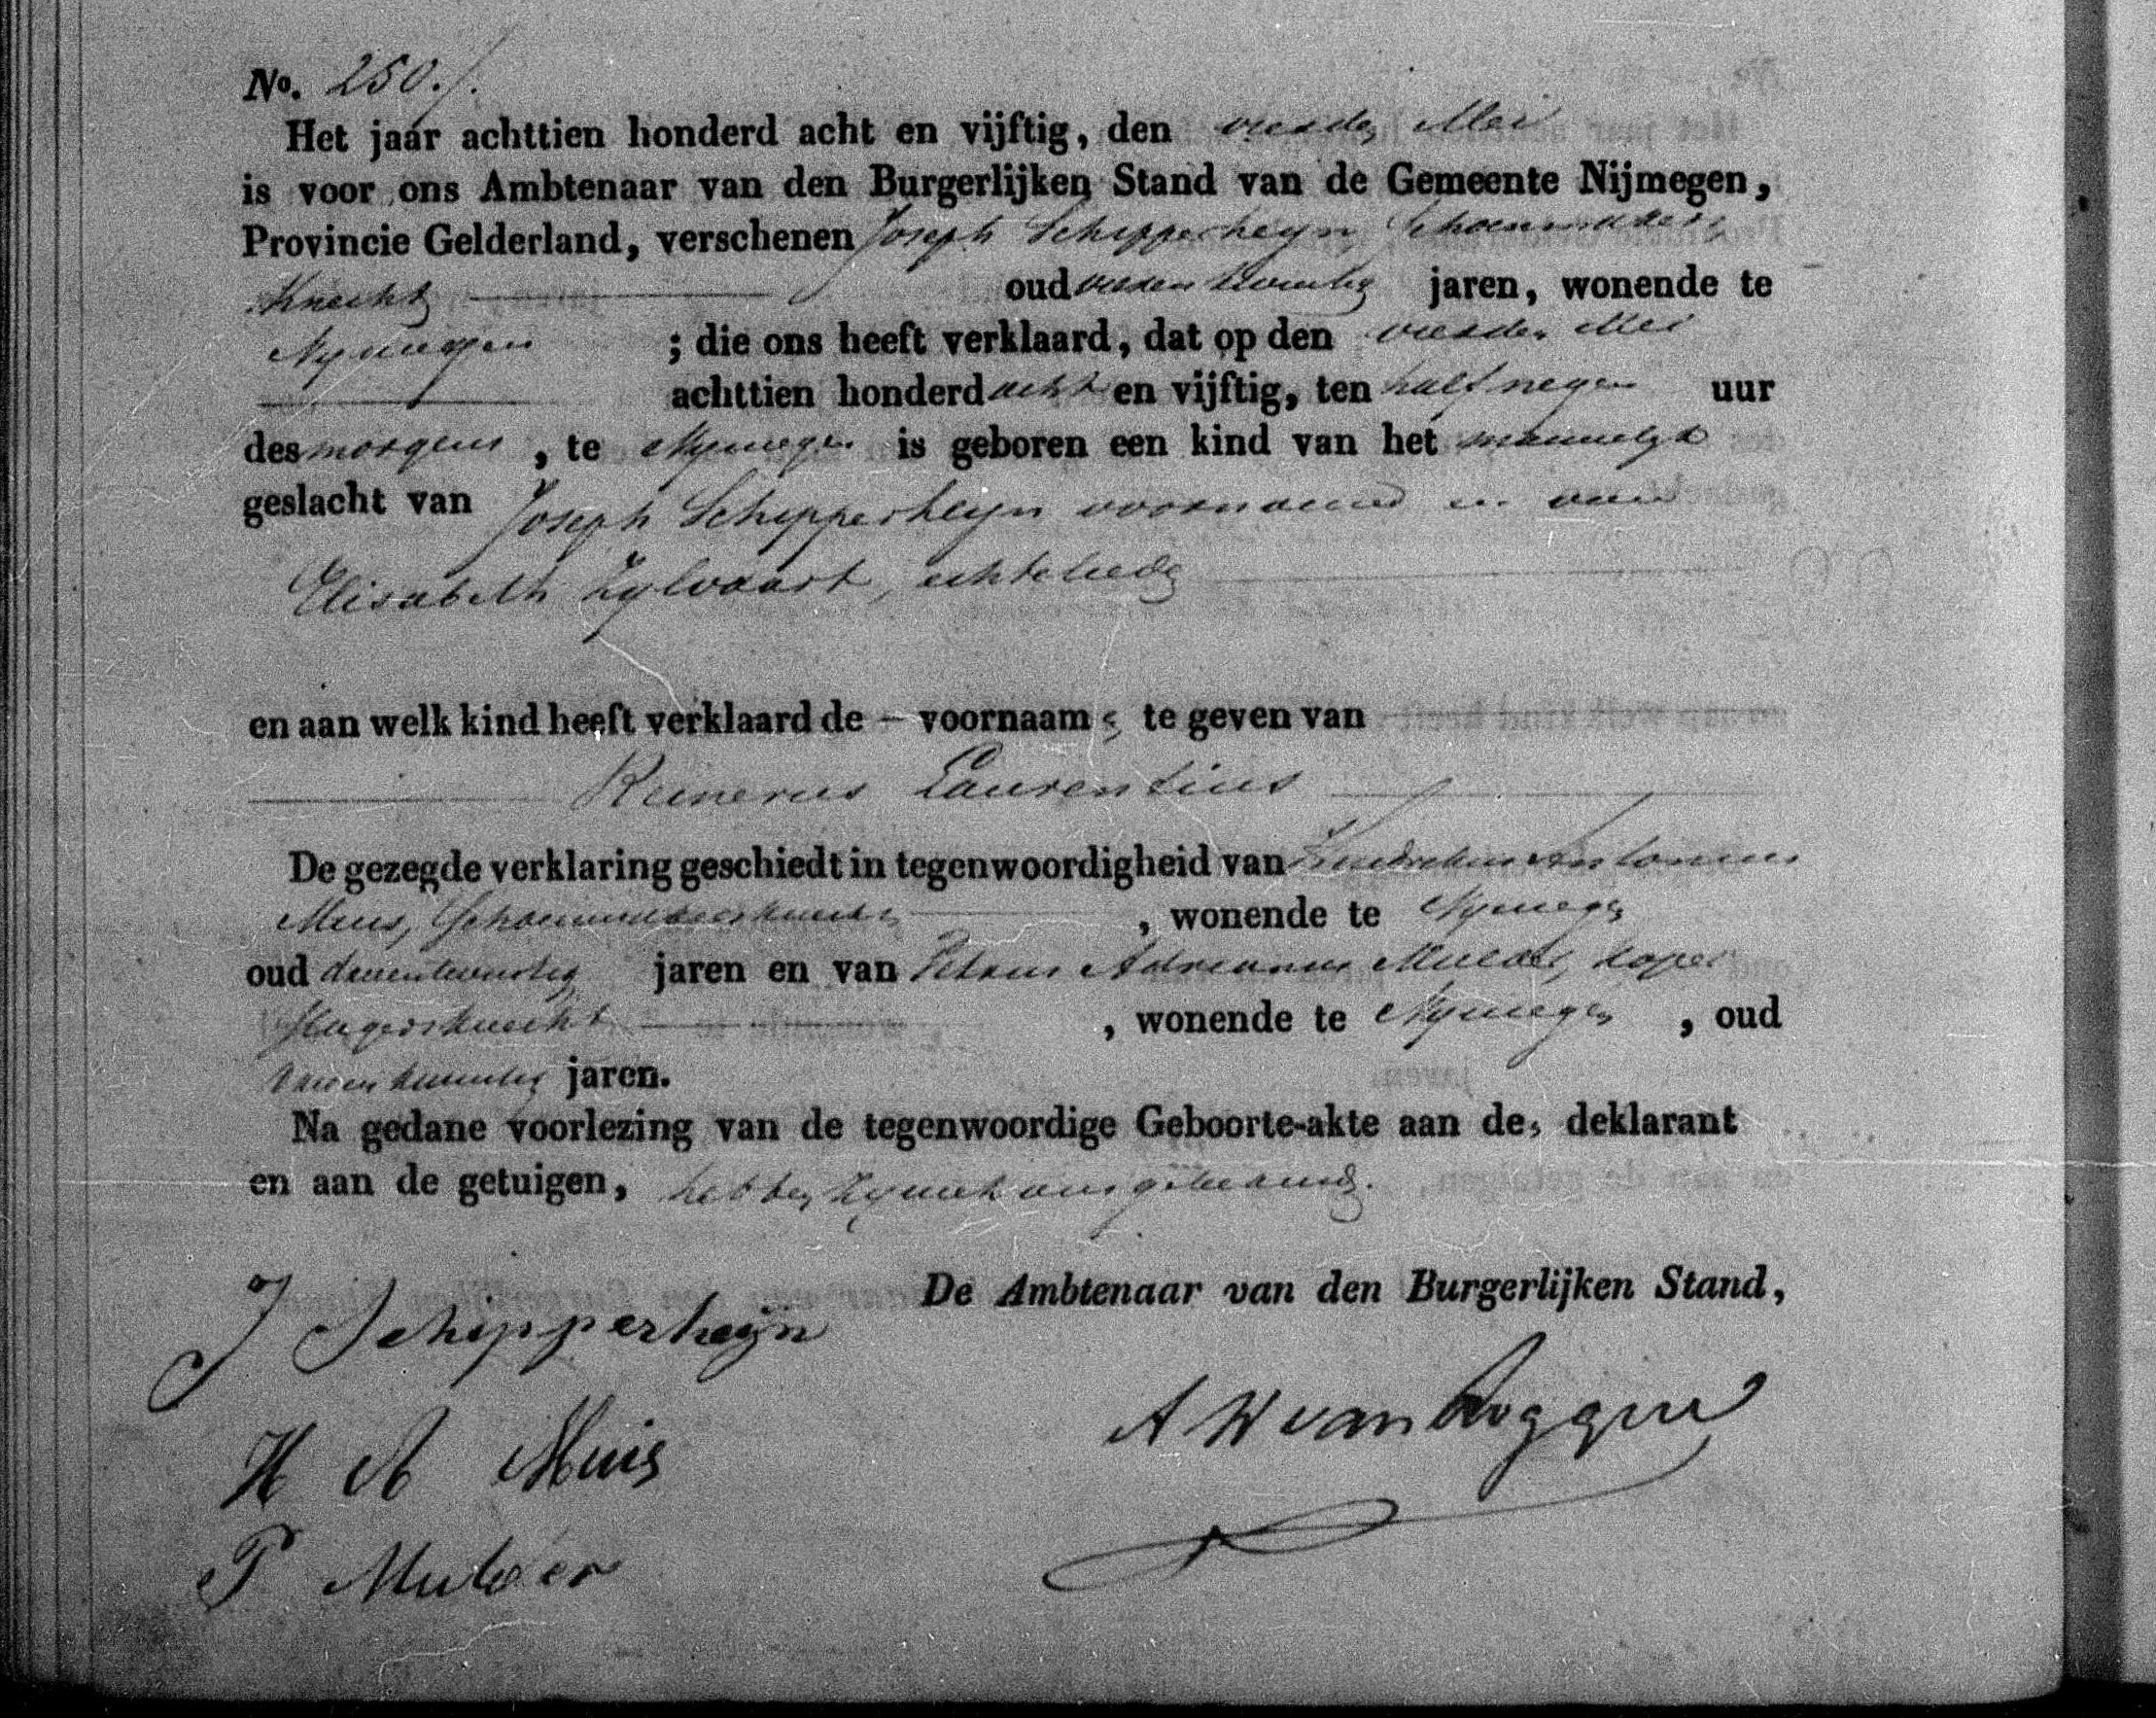 No. 250./.
Het jaar achttien honderd acht en vijftig, den vierden Mei
is voor ons Ambtenaar van den Burgerlijken Stand van de Gemeente Nijmegen,
Provincie Gelderland, verschenen Joseph Schipperheyn, Schoenmakers
Knecht oud jaren, wonende te
Nymegen ; die ons heeft verklaard, dat op den vierden Mei
achttien honderd acht en vijftig, ten half negen uur
des morgens, te Nymegen is geboren een kind van het mannelyk
geslacht van Joseph Schipperheyn voornoemd en van
Elisabeth Zylvaart, echtelieden
en aan welk kind heeft verklaard de – voornaam s te geven van
Reinerus Laurentius
De gezegde verklaring geschiedt in tegenwoordigheid van Hendrikus Antonius
Muis, Schoenmakersknecht, wonende te Nymegen
oud jaren en van Petrus Adrianus Mulder, koper
slagersknecht, wonende te Nymegen, oud
jaren.
Na gedane voorlezing van de tegenwoordige Geboorte-akte aan de, deklarant
en aan de getuigen, hebben zy met ons geteekend.
De Ambtenaar van den Burgerlijken Stand,
J Schipperheijn
A W van
H A Muis
P Mulder